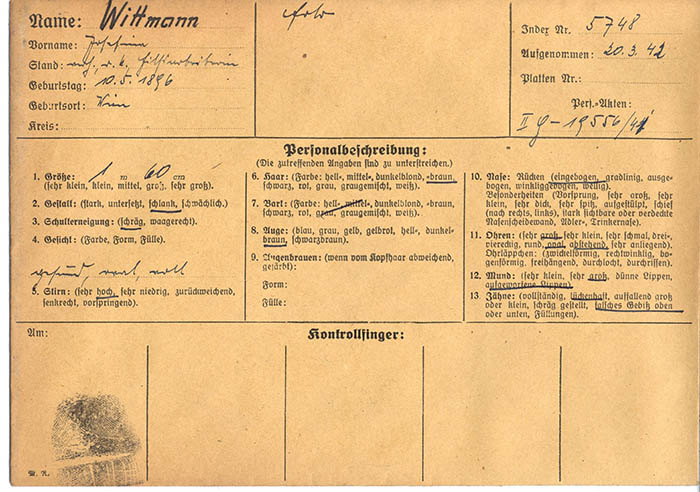 Name: Wittmann
Vorname: Josefine
Stand:
Geburtstag: 10.5.1896
Geburtsort: Wien
Kreis:
Index Nr. 5748
Aufgenommen: 20.3.42
Platten Nr.:
Pers.-Akten:
II g - 19556/41
Personalbeschreibung:
(Die zutreffenden Angaben sind zu unterstreichen.)
1. Größe: 1 m 60 cm
(sehr klein, klein, mittel, groß, sehr groß).
2. Gestalt: (stark, untersetzt, schlank, schwächlich).
3. Schulterneigung: (schräg, waagerecht).
4. Gesicht: (Farbe, Form, Fülle).
gesund, oval, voll
5. Stirn: (sehr hoch, sehr niedrig, zurückweichend,
senkrecht, vorspringend).
6. Haar: (Farbe: hell-, mittel-, dunkelblond, -braun,
schwarz, rot, grau, graugemischt, weiß).
7. Bart: (Farbe: hell-, mittel-, dunkelblond, -braun,
schwarz, rot, grau, graugemischt, weiß).
8. Auge: (blau, grau, gelb, gelbrot, hell-, dunkel-
braun, schwarzbraun).
9. Augenbrauen: (wenn vom Kopfhaar abweichend,
gefärbt):
Form:
Fülle:
10. Nase: Rücken (eingebogen, gradlinig, ausge-
bogen, winkliggebogen, wellig).
Besonderheiten (Vorsprung, sehr groß, sehr
klein, sehr dick, sehr spitz, aufgestülpt, schief
(nach rechts, links), stark sichtbare oder verdeckte
Nasenscheidewand, Adler-, Trinkernase).
11. Ohren: (sehr groß, sehr klein, sehr schmal, drei-,
viereckig, rund, oval, abstehend, sehr anliegend).
Ohrläppchen: (zwickelförmig, rechtwinklig, bo-
genförmig, freihängend, durchlocht, durchrissen).
12. Mund: (sehr klein, sehr groß, dünne Lippen,
aufgeworfene Lippen).
13. Zähne: (vollständig, lückenhaft, auffallend groß
oder klein, schräg gestellt, falsches Gebiß oben
oder unten, Füllungen).
Am:
Kontrollfinger: